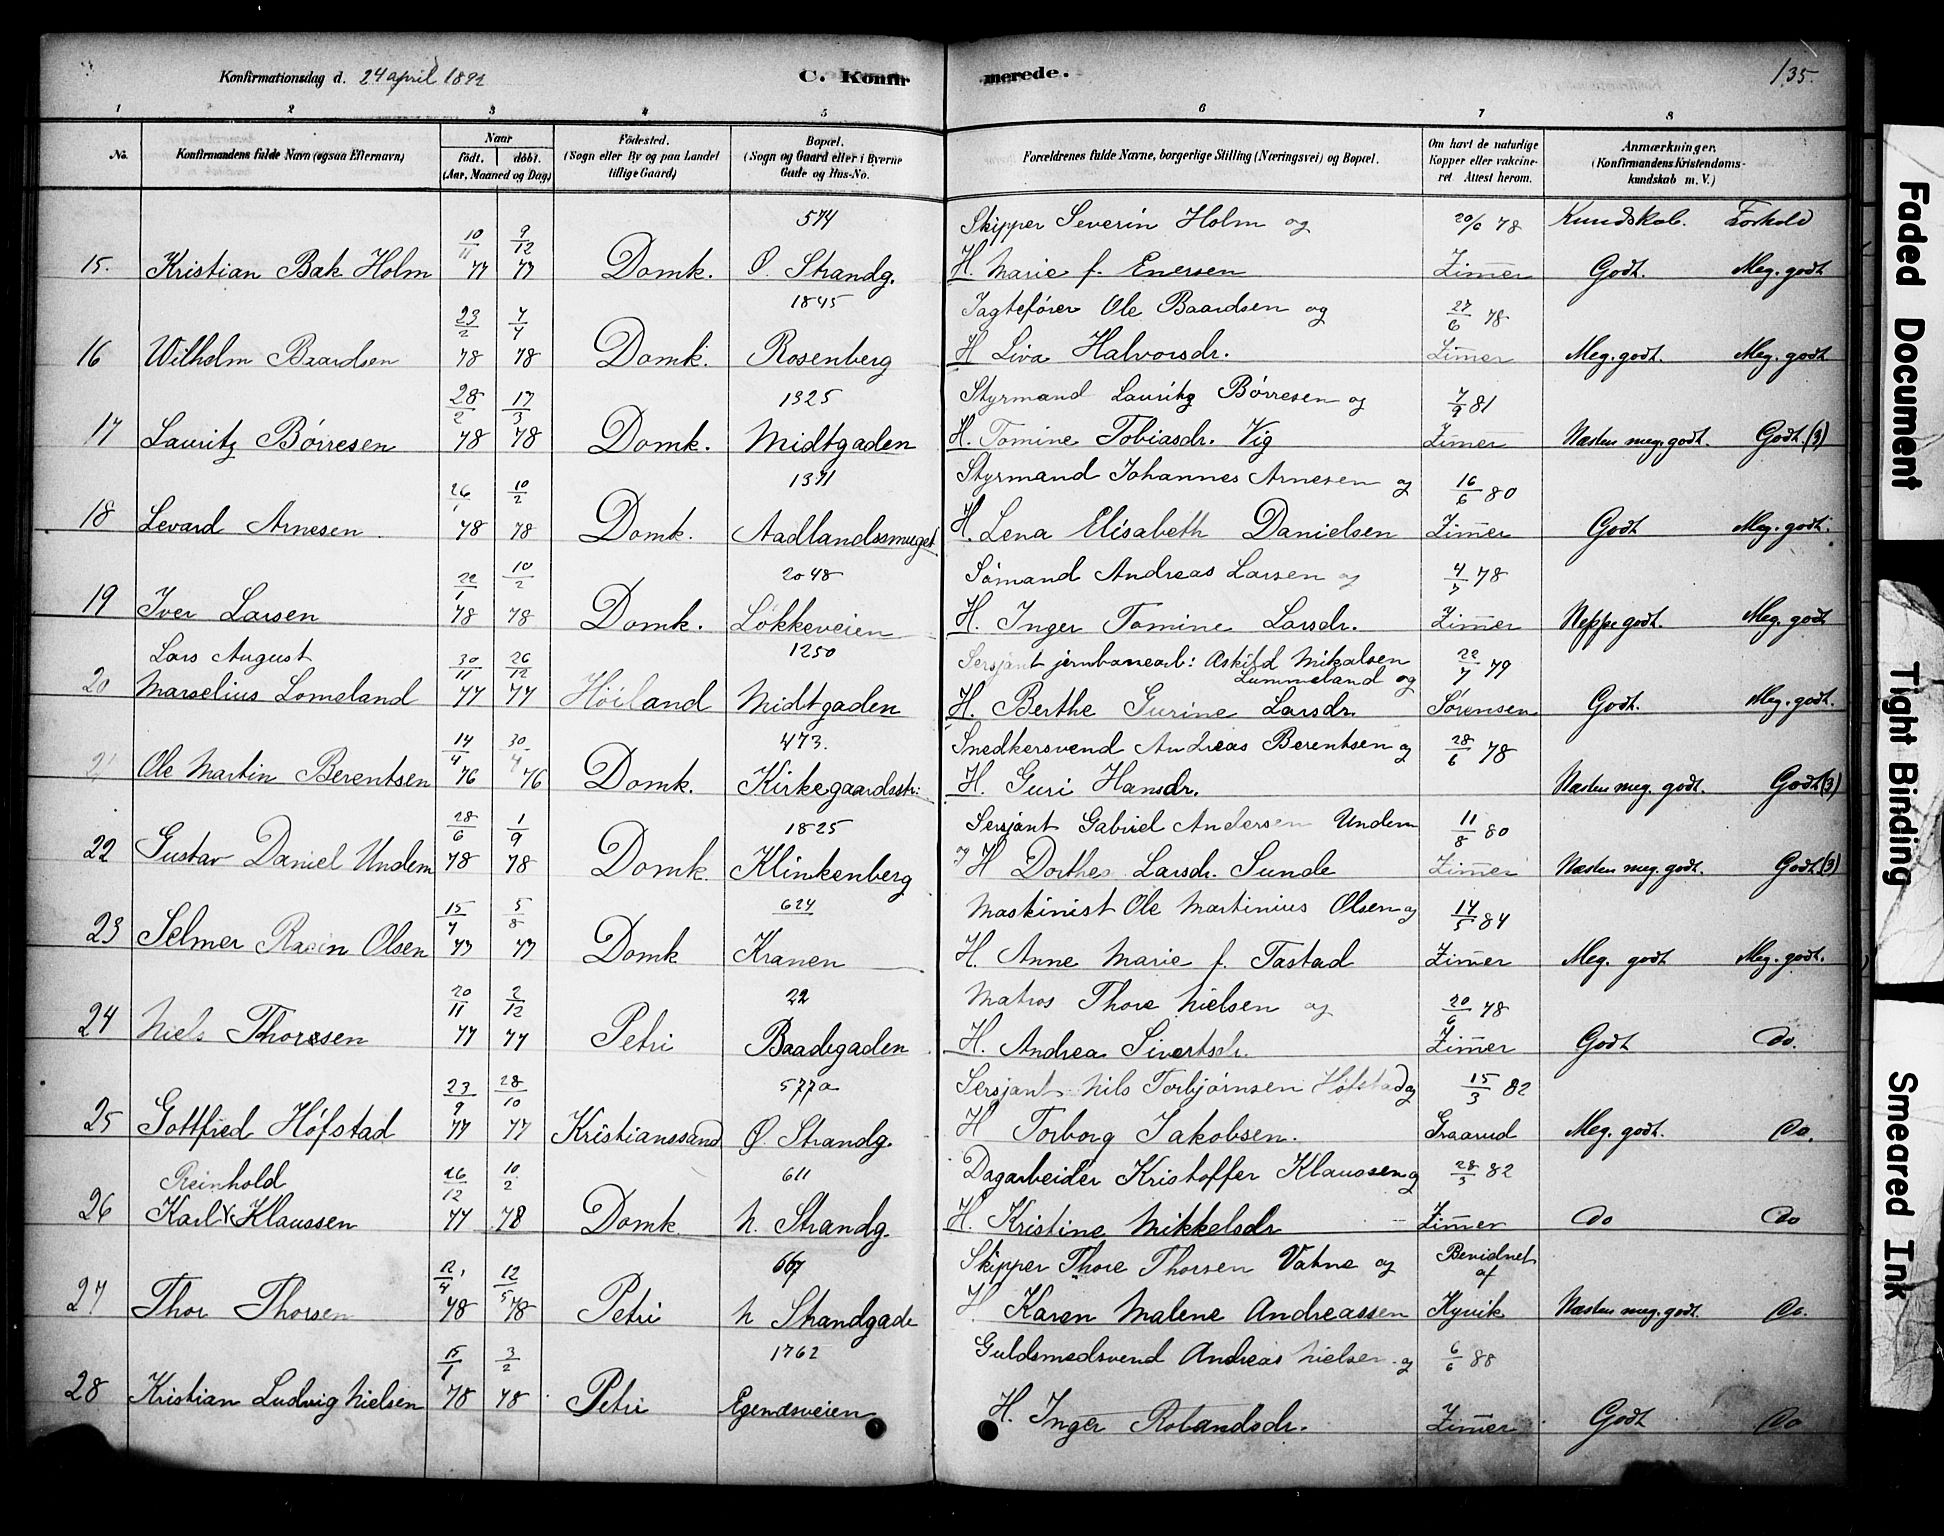 Konfirmationsdag d. 24 april 1892 C. Konfirmerede. 135.
1 2 3 4 5 6 7 8
No. Konfirmandens fulde Navn (ogsaa Efternavn) Naar Födested. Bopæl. Forældrenes fulde Navne, borgerlige Stilling (Næringsvei) og Bopæl. Om havt de naturlige Anmærkninger.
födt. döbt. (Sogn eller By og paa Landet (Sogn og Gaard eller i Byerne Kopper eller vakcine- (Konfirmandens Kristendoms-
(Aar, Maaned og Dag) tillige Gaard) Gade og Hus-No. ret Attest herom. kundskab m. V.)
574 Skipper Severin Holm og 20/6 78 Kundskab. Forhold
15. Kristian Bak Holm 10/11 77 9/12 77 Domk. Ø. Strandg. H. Marie f. Enersen Zimer Godt. Meg. godt
1845 Jagtefører Ole Baardsen og 27/6 78
16 Wilhelm Baardsen 23/2 78 7/4 78 Domk. Rosenberg H Liva Halvorsdr. Zimer Meg. godt. Meg. godt
1325 Styrmand Lauritz Børresen og 7/9 81
17 Lauritz Børresen 28/2 78 17/3 78 Domk. Midtgaden H. Tomine Tobiasdr. Vig Zimer Næsten meg. godt. Godt. (3)
1371 Styrmand Johannes Arnesen og 16/6 80
18 Levard Arnesen 26/1 78 10/2 78 Domk. Aadlandssmuget H. Lena Elisabeth Danielsen Zimer Godt Meg. godt.
2048 Sømand Andreas Larsen og 78
19 Iver Larsen 22/1 78 10/2 78 Domk. Løkkeveien H. Inger Tomine Larsdr. Zimer Neppe godt. Meg. godt
Lars August 1250 Sersjant jernbanearb: Askild Mikalsen 22/7 79
Lummeland og
20 Marselius Lomeland 30/11 77 26/12 77 Höiland Midtgaden H. Berthe Gurine Larsdr. Sørensen Godt. Meg. godt.
473. Snedkersvend Andreas Berentsen og 28/6 78
21 Ole Martin Berentsen 14/4 76 30/4 76 Domk. Kirkegaardsstr: H. Guri Hansdr. Næsten meg. godt. Godt (3)
1825 Sersjant Gabriel Andersen Undem 11/8 80
22 Gustav Daniel Undem 28/6 78 1/9 78 Domk. Klinkenberg og H Dorthea Larsdr. Sunde Zimer Næsten meg. godt. Godt (3)
624 Maskinist Ole Martinius Olsen og 14/5 84
23 Selmer Olsen 15/7 77 5/8 77 Domk Kranen H. Anne Marie f. Tastad Zimer Meg. godt Meg. godt.
22 Matros Thore Nielsen og 20/6 78
24 Niels Thoresen 20/11 77 2/12 77 Petri Baadegaden H. Andrea Sivertsdr. Zimer Godt Do.
577a Sersjant Nils Torbjörnsen Höfstad og 15/3 82
25 Gottfried Höfstad 23/9 77 28/10 77 Kristianssand Ø. Strandg. H Torborg Jakobsen. Graarud Meg. godt. Do.
Reinhold 611 Dagarbeider Kristoffer Klaussen og 28/3 82
26 Karl Klaussen 26/12 77 10/2 78 Domk. N. Strandg. H. Kristine Mikkelsdr Zimer Do Do
667 Skipper Thore Thorsen Vatne og Bevidnet
af
27 Thor Thorsen 12/4 78 12/5 78 Petri N Strandgade H Karen Malene Andreassen Kyvik Næsten meg. godt. Do.
1762 Guldsmedsvend Andreas Nielsen og 6/6 88
28 Kristian Ludvig Nielsen 15/1 78 3/2 78 Petri Egenæsveien H. Inger Rolandsdr. Zimer Godt Do
Faded Document
Tight Binding
Smeared Ink